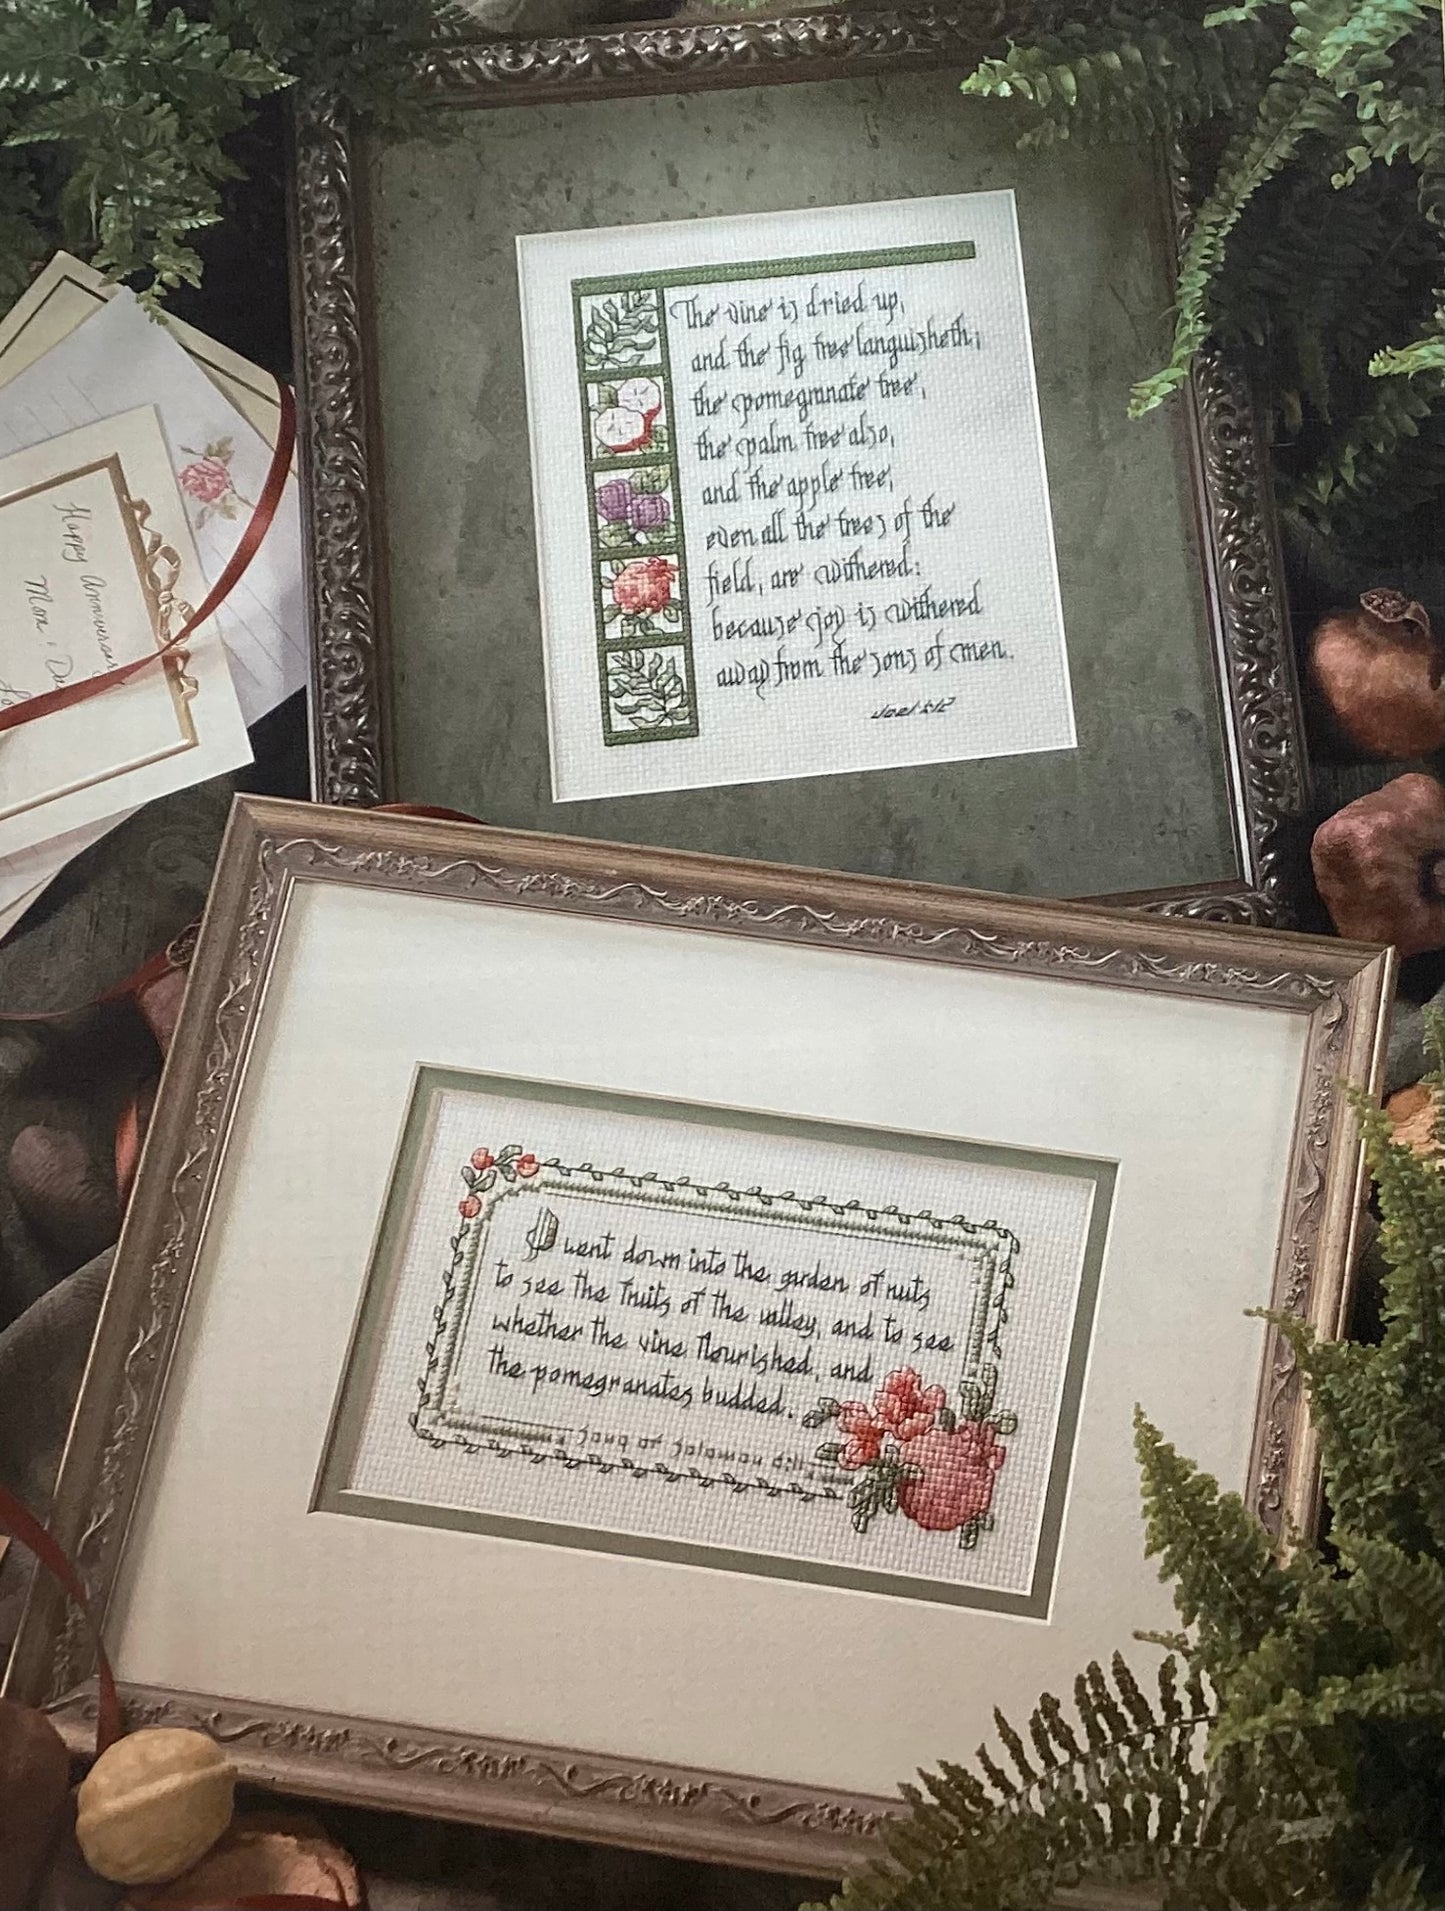 The vine is dried up,
and the fig tree languisheth;
the pomegranate tree,
the palm tree also,
and the apple tree,
even all the trees of the
field, are withered:
because joy is withered
away from the sons of men.
Joel 1:12
Happy Anniversary
Mom & Da
Lo
I went down into the garden of nuts
to see the fruits of the valley, and to see
whether the vine flourished, and
the pomegranates budded.
Song of Solomon 6:11